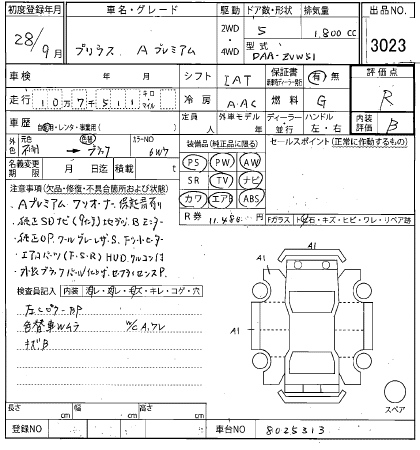 初度登録年月 車名・グレード 駆動 ドア数・形状 排気量 出品NO.
28/9月 プリウス Aプレミアム 2WD・4WD 5 1,800 CC 3023
型式 DAA-ZVW51
車検 年 月 シフト IAT 保証書 有 無 評価点
走行 10万7千511 キロ マイル 冷房 A・AC 燃料 G R
車歴 自家用・レンタ・事業用( ) 定員 人 外車モデル 年 ディーラー・並行 ハンドル 左・右 内装評価 B
外色 元色 色替 → ブラック カラーNO 6W7 装備品(純正品に限る) セールスポイント(正常に作動するもの)
名義変更期限 月 日迄 積載 t PS PW AW
注意事項(欠品・修復・不具合箇所および状態) SR TV ナビ
・Aプレミアム ワンオーナー 保記書有り カワ エアB ABS
・純正SDナビ(9インチ)地デジ Bモニター R券 11,480 円
Fガラス トビ石・キズ・ヒビ・ワレ・リペア跡
・エアコンパイ(F.S.R) HUD クルコン
検査員記入 内装 汚レ・スレ・キズ・キレ・コゲ・穴
左ピラーBP
色替車ムラ W/C A、ワレ
キズB
A1
A1
A1
スペア
長さ cm 幅 cm 高さ cm
登録NO 車台NO 8025313